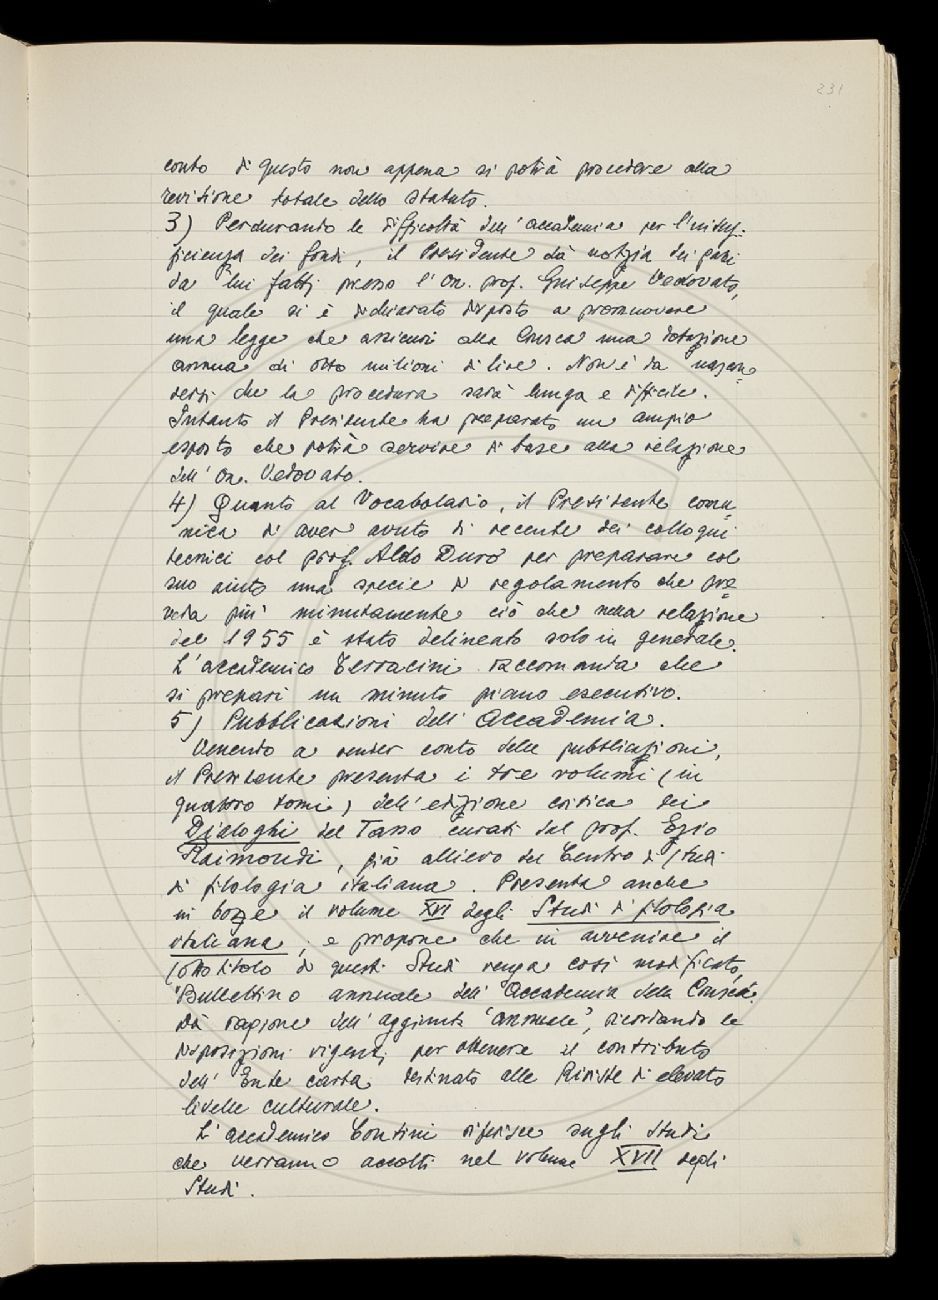 231
conto di questo non appena si potrà procedere alla
revisione totale dello statuto.
3) Perdurando le difficoltà dell'accademia per l'insuf-
ficienza dei fondi, il Presidente dà notizia dei passi
da lui fatti presso l'On. prof. Giuseppe Vedovato,
il quale si è dichiarato disposto a promuovere
una legge che assicuri alla Crusca una dotazione
annua di otto milioni di lire. Non è da nascon=
dersi che la procedura sarà lunga e difficile.
Intanto il Presidente ha preparato un ampio
esposto che potrà servire di base alla relazione
dell'On. Vedovato.
4) Quanto al Vocabolario, il Presidente comu=
nica di aver avuto di recente dei colloqui
tecnici col prof. Aldo Duro per preparare col
suo aiuto una specie di regolamento che pre=
veda più minutamente ciò che nella relazione
del 1955 è stato delineato solo in generale.
L'accademico Terracini raccomanda che
si prepari un minuto piano esecutivo.
5) Pubblicazioni dell'Accademia.
Venendo a render conto delle pubblicazioni,
il Presidente presenta i tre volumi (in
quattro tomi) dell'edizione critica dei
Dialoghi del Tasso curati dal prof. Ezio
Raimondi, già allievo del Centro di Studi
di filologia italiana. Presenta anche
in bozze il volume XVI degli Studi di filologia
italiana; e propone che in avvenire il
sottotitolo di questi Studi venga così modificato,
"Bullettino annuale dell'Accademia della Crusca".
Dà ragione dell'aggiunta "annuale", ricordando le
disposizioni vigenti per ottenere il contributo
dell'Ente carta destinato alle Riviste di elevato
livello culturale.
L'accademico Contini riferisce sugli studi
che verranno accolti nel volume XVII degli
Studi.